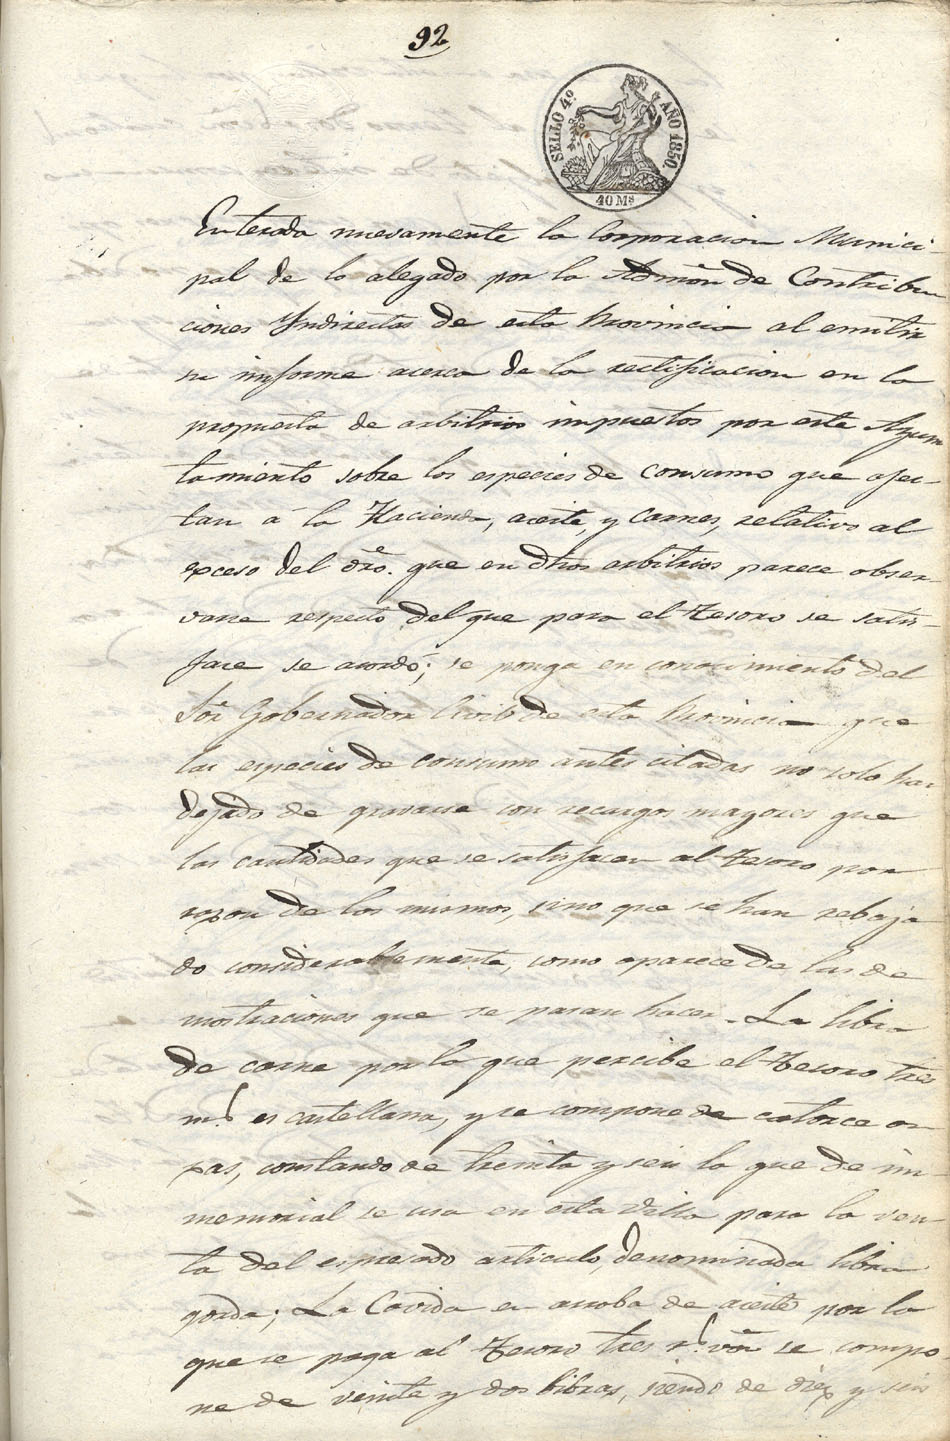 92
SELLO 4º AÑO 1850.
40 Ms
Enterada nuevamente la Corporacion Munici-
pal de lo alegado por la Admon de Contribu
ciones Yndirectas de esta Provincia al emitir
su imforme acerca de la rectificacion en la
propuesta de arbitrios impuestos por este Ayun
tamiento sobre las especies de consumo que afec-
tan á la Hacienda, aceite, y carnes, relativo al
exceso del dro. que en dhos arbitrios parece obser-
varse respecto del que para el Tesoro se satis-
face se acordó; se ponga en conocimiento del
Sor Gobernador Civil de esta Provincia que
las especies de consumo antes citadas no solo han
dejado de gravarse con recargos mayores que
las cantidades que se satisfacen al Tesoro por
razon de los mismos, sino que se han rebaja
do considerablemente, como aparece de las de
mostraciones que se pasan hacer. La libra
de carne por la que percibe el Tesoro tres
ms es castellana, y se compone de catorce on
zas, constando de treinta y seis la que de im
memorial se usa en esta Villa para la ven
ta del espresado articulo, denominada libra
gorda; La Cavida en arroba de aceite por la
que se paga al Tesoro tres rs von se compo
ne de veinte y dos libras, siendo de diez y seis